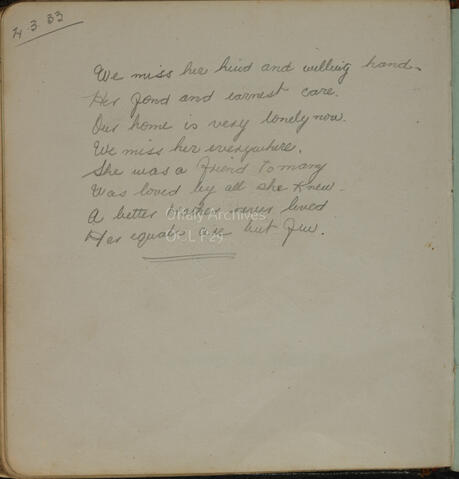 4.3.33
We miss her kind and willing hand.
Her fond and earnest care.
Our home is very lonely now
We miss her everywhere.
She was a Friend to many
Was loved by all she knew.
A better never lived
Her equals are but few.
Offaly Archives